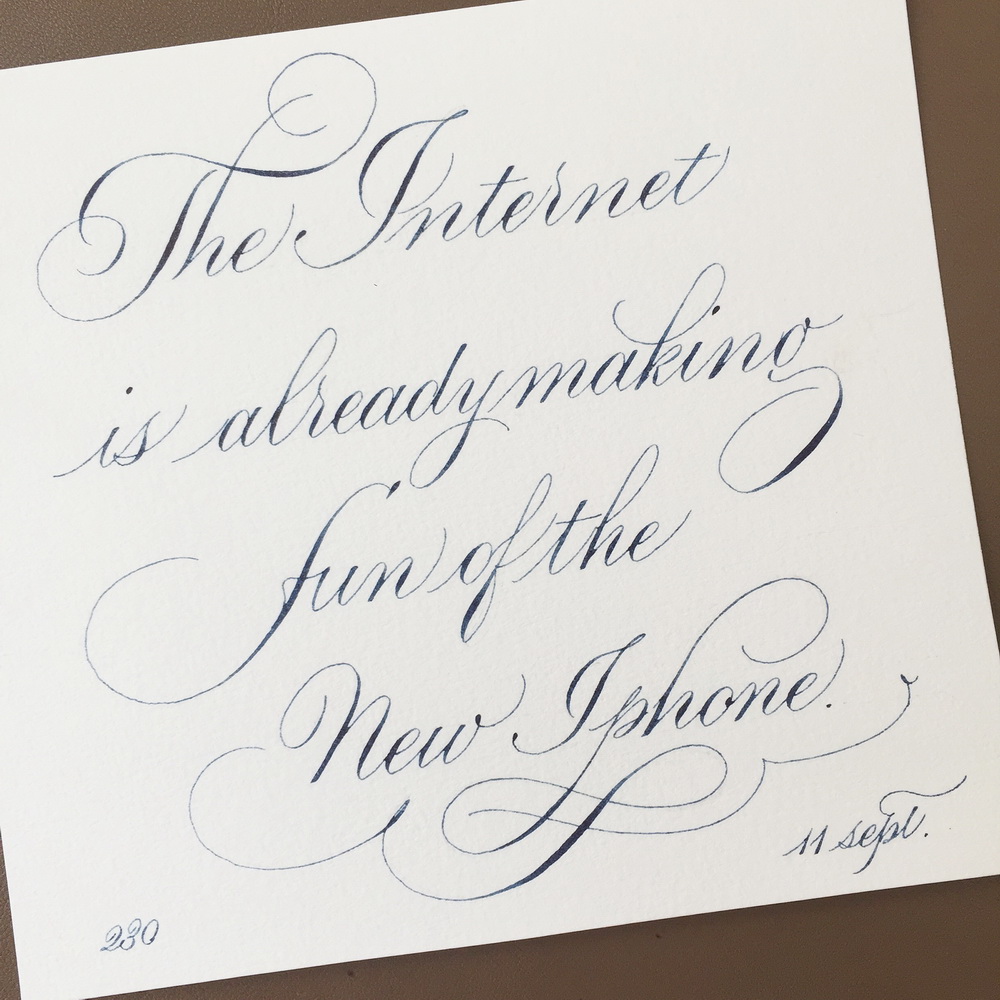 The Internet
is already making
fun of the
New Iphone.
11 sept.
230